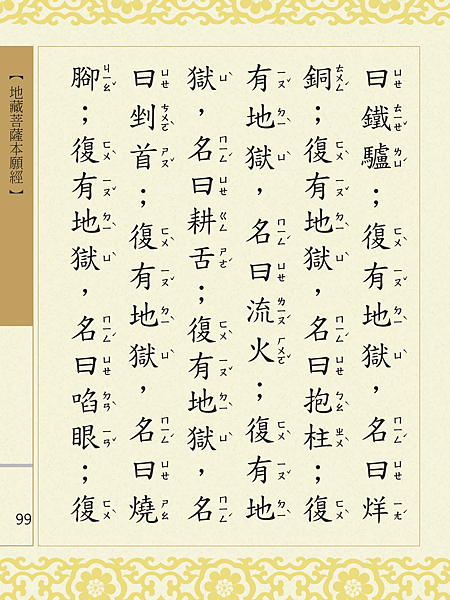 曰鐵驢；復有地獄，名曰烊
銅；復有地獄，名曰抱柱；復
有地獄，名曰流火；復有地
獄，名曰耕舌；復有地獄，名
曰剉首；復有地獄，名曰燒
腳；復有地獄，名曰啗眼；復
【地藏菩薩本願經】
99